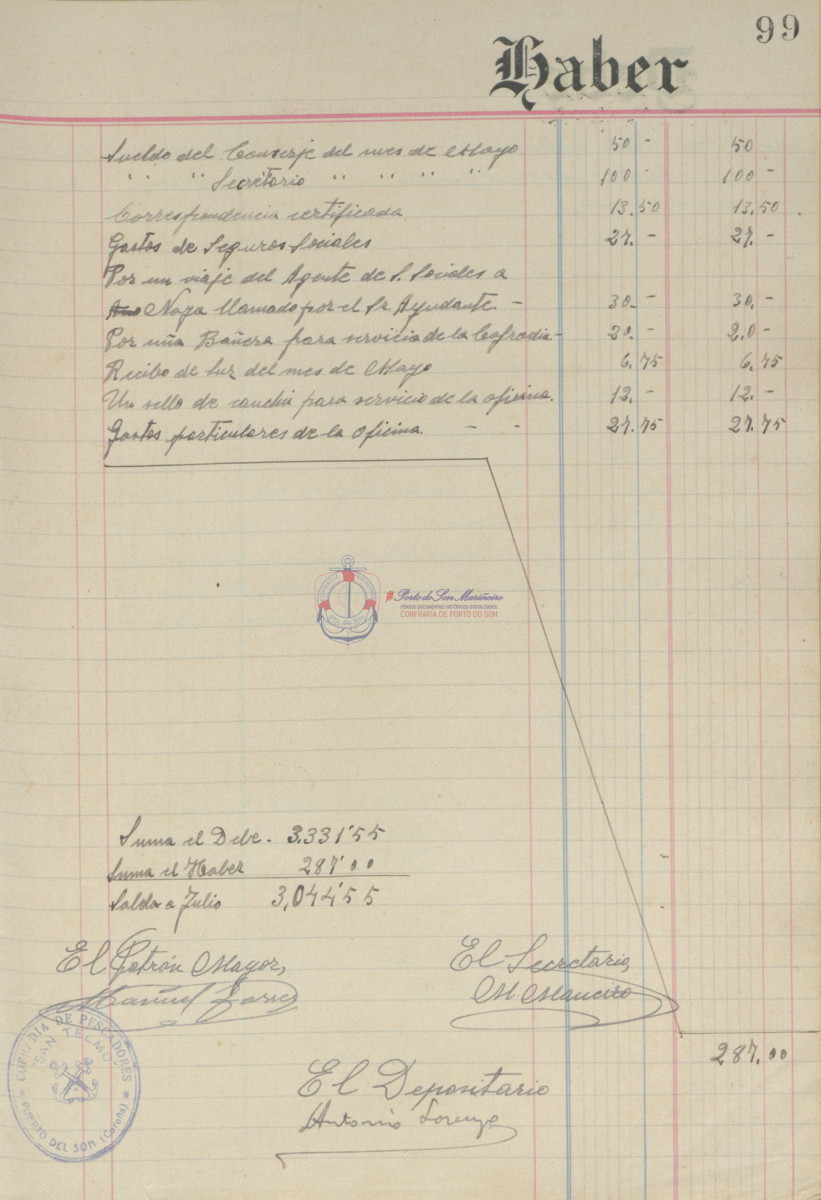 99
Haber
Sueldo del Conserje del mes de Mayo 50 - 50
" " " Secretario " " " " 100 - 100 -
Correspondencia certificada 13.50 13.50
Gastos de Seguros Sociales 27. - 27. -
Por un viaje del Agente de S. Sociales a
Noya llamado por el Sr. Ayudante. - 30. - 30. -
Por uña Bañera para servicio de la Cofradia - 20. - 20 -
Recibo de luz del mes de Mayo 6.75 6.75
Un sello de cauchú para servicio de la oficina. 12. - 12. -
Gastos particulares de la Oficina. - - 27.75 27.75
#Porto do Son Mariñeiro
FONDOS DOCUMENTAIS HISTÓRICOS DIXITALIZADOS
CONFRARÍA DE PORTO DO SON
Suma el Debe. 3.331'55
Suma el Haber 287'00
Saldo a Julio 3,044'55
El Patrón Mayor,
Manuel
El Secretario,
M Maneiro
287.00
COFRADIA DE PESCADORES
"SAN TELMO"
PUERTO DEL SON (Coruña)
El Depositario
Antonio Lorenzo